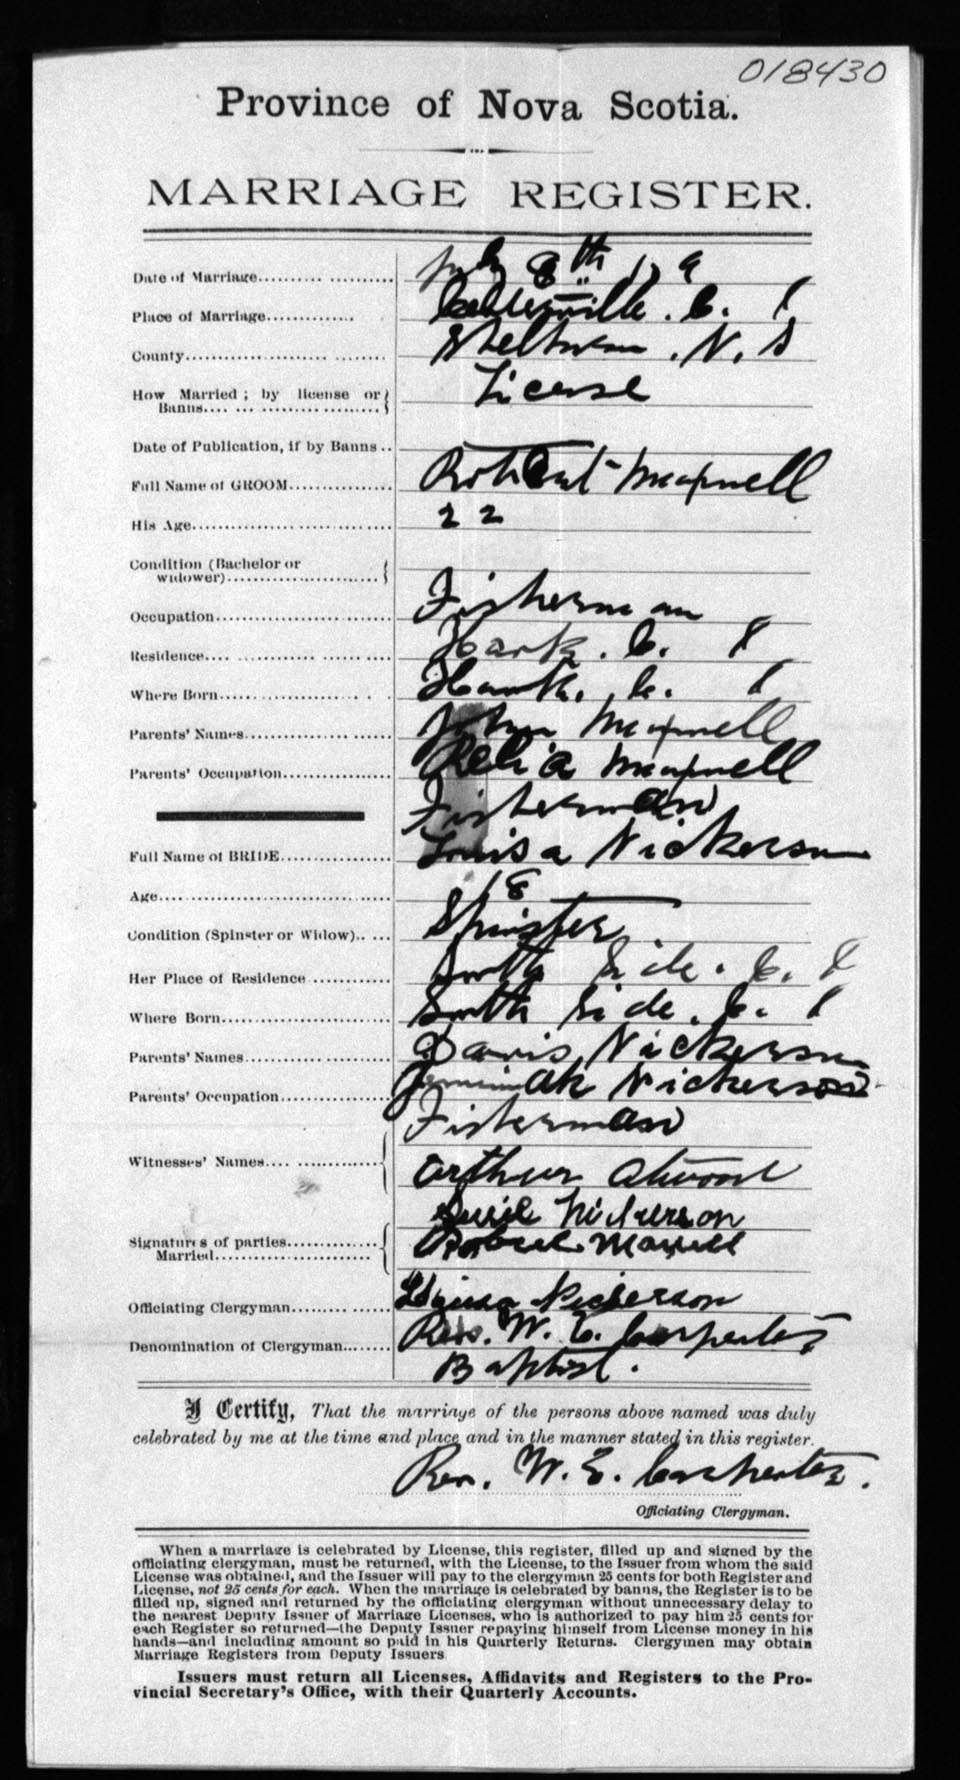 018430
Province of Nova Scotia.
MARRIAGE REGISTER.
Date of Marriage.......... July 8th
Place of Marriage............ C. I
County.................. Shelburne . N. S
How Married ; by license or License
Banns....
Date of Publication, if by Banns ..
Full Name of GROOM............ Robert Maxwell
His Age.................. 22
Condition (Bachelor or
widower)....................
Occupation.................. Fisherman
Residence.... Hawk . C. I
Where Born.................. Hawk. C. I
Parents' Names.................. John Maxwell
Parents' Occupation............ Relia Maxwell
Fisherman
Full Name of BRIDE............ Louisa Nickerson
Age.................. 18
Condition (Spinster or Widow)..... Spinster
Her Place of Residence ............ South Side . C. I
Where Born.................. South Side . C. I
Parents' Names.................. Davis Nickerson
Parents' Occupation............ Jemimah Nickerson
Fisherman
Witnesses' Names.... Arthur Atwood
Susie Nickerson
Signatures of parties............ Robert Maxwell
Married..................
Officiating Clergyman............ Louisa Nickerson
Rev. W. E. Carpenter
Denomination of Clergyman....... Baptist.
I Certify, That the marriage of the persons above named was duly
celebrated by me at the time and place and in the manner stated in this register.
Rev. W. E. Carpenter.
Officiating Clergyman.
When a marriage is celebrated by License, this register, filled up and signed by the
officiating clergyman, must be returned, with the License, to the Issuer from whom the said
License was obtained, and the Issuer will pay to the clergyman 25 cents for both Register and
License, not 25 cents for each. When the marriage is celebrated by banns, the Register is to be
filled up, signed and returned by the officiating clergyman without unnecessary delay to
the nearest Deputy Issuer of Marriage Licenses, who is authorized to pay him 25 cents for
each Register so returned—the Deputy Issuer repaying himself from License money in his
hands—and including amount so paid in his Quarterly Returns. Clergymen may obtain
Marriage Registers from Deputy Issuers
Issuers must return all Licenses, Affidavits and Registers to the Pro-
vincial Secretary's Office, with their Quarterly Accounts.